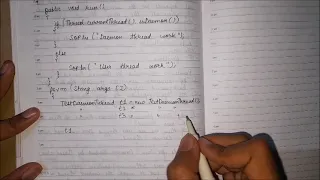 public void run()
{
if (Thread.currentThread().isDaemon())
{
Sopln("Daemon thread work");
}
else
{
Sopln("User thread work");
}
}
p s v m (String args [])
TestDaemonThread t1 = new TestDaemonThread();
" t2 " " "
" t3 " " "
t1